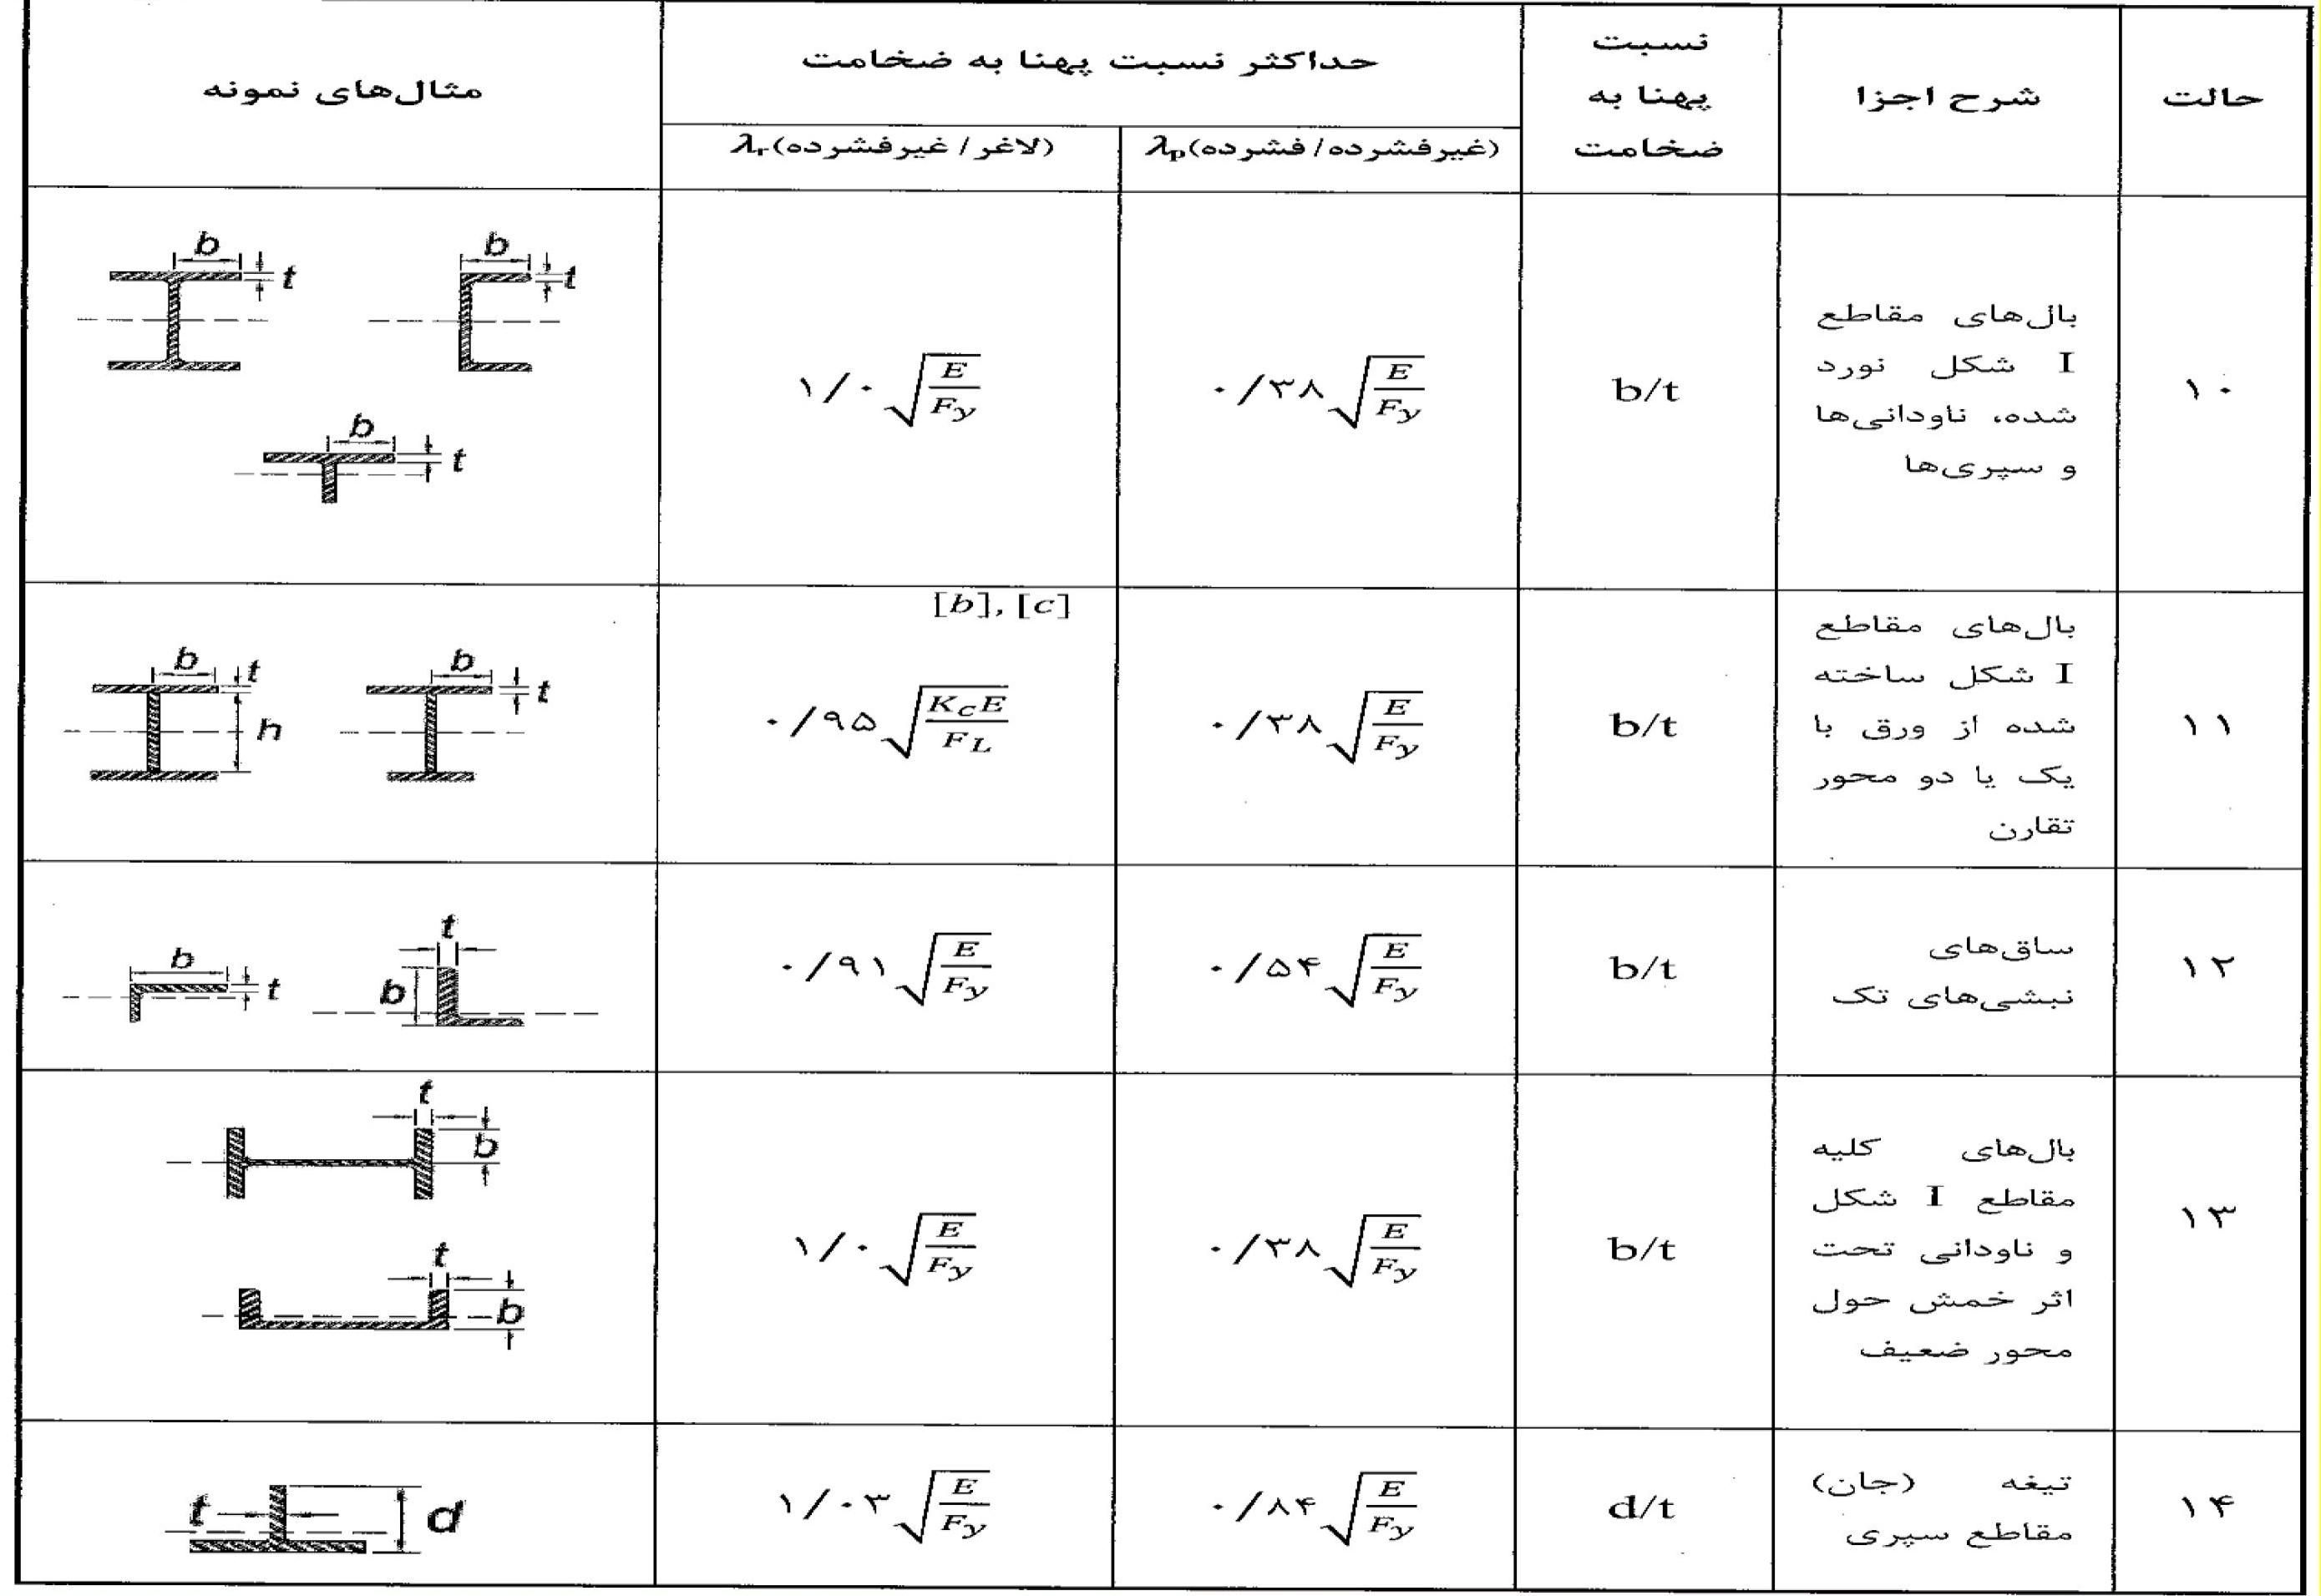 حالت
شرح اجزا
نسبت
پهنا به
ضخامت
حداکثر نسبت پهنا به ضخامت
λp(غیرفشرده/ فشرده)
λr(لاغر/ غیرفشرده)
مثال‌های نمونه
۱۰
بال‌های مقاطع
I شکل نورد
شده، ناودانی‌ها
و سپری‌ها
b/t
۰/۳۸√(E/Fy)
۱/۰√(E/Fy)
b
t
b
t
b
t
۱۱
بال‌های مقاطع
I شکل ساخته
شده از ورق با
یک یا دو محور
تقارن
b/t
۰/۳۸√(E/Fy)
[b], [c]
۰/۹۵√(KcE/FL)
b
t
h
b
t
۱۲
ساق‌های
نبشی‌های تک
b/t
۰/۵۴√(E/Fy)
۰/۹۱√(E/Fy)
b
t
t
b
۱۳
بال‌های کلیه
مقاطع I شکل
و ناودانی تحت
اثر خمش حول
محور ضعیف
b/t
۰/۳۸√(E/Fy)
۱/۰√(E/Fy)
t
b
t
b
۱۴
تیغه (جان)
مقاطع سپری
d/t
۰/۸۴√(E/Fy)
۱/۰۳√(E/Fy)
t
d